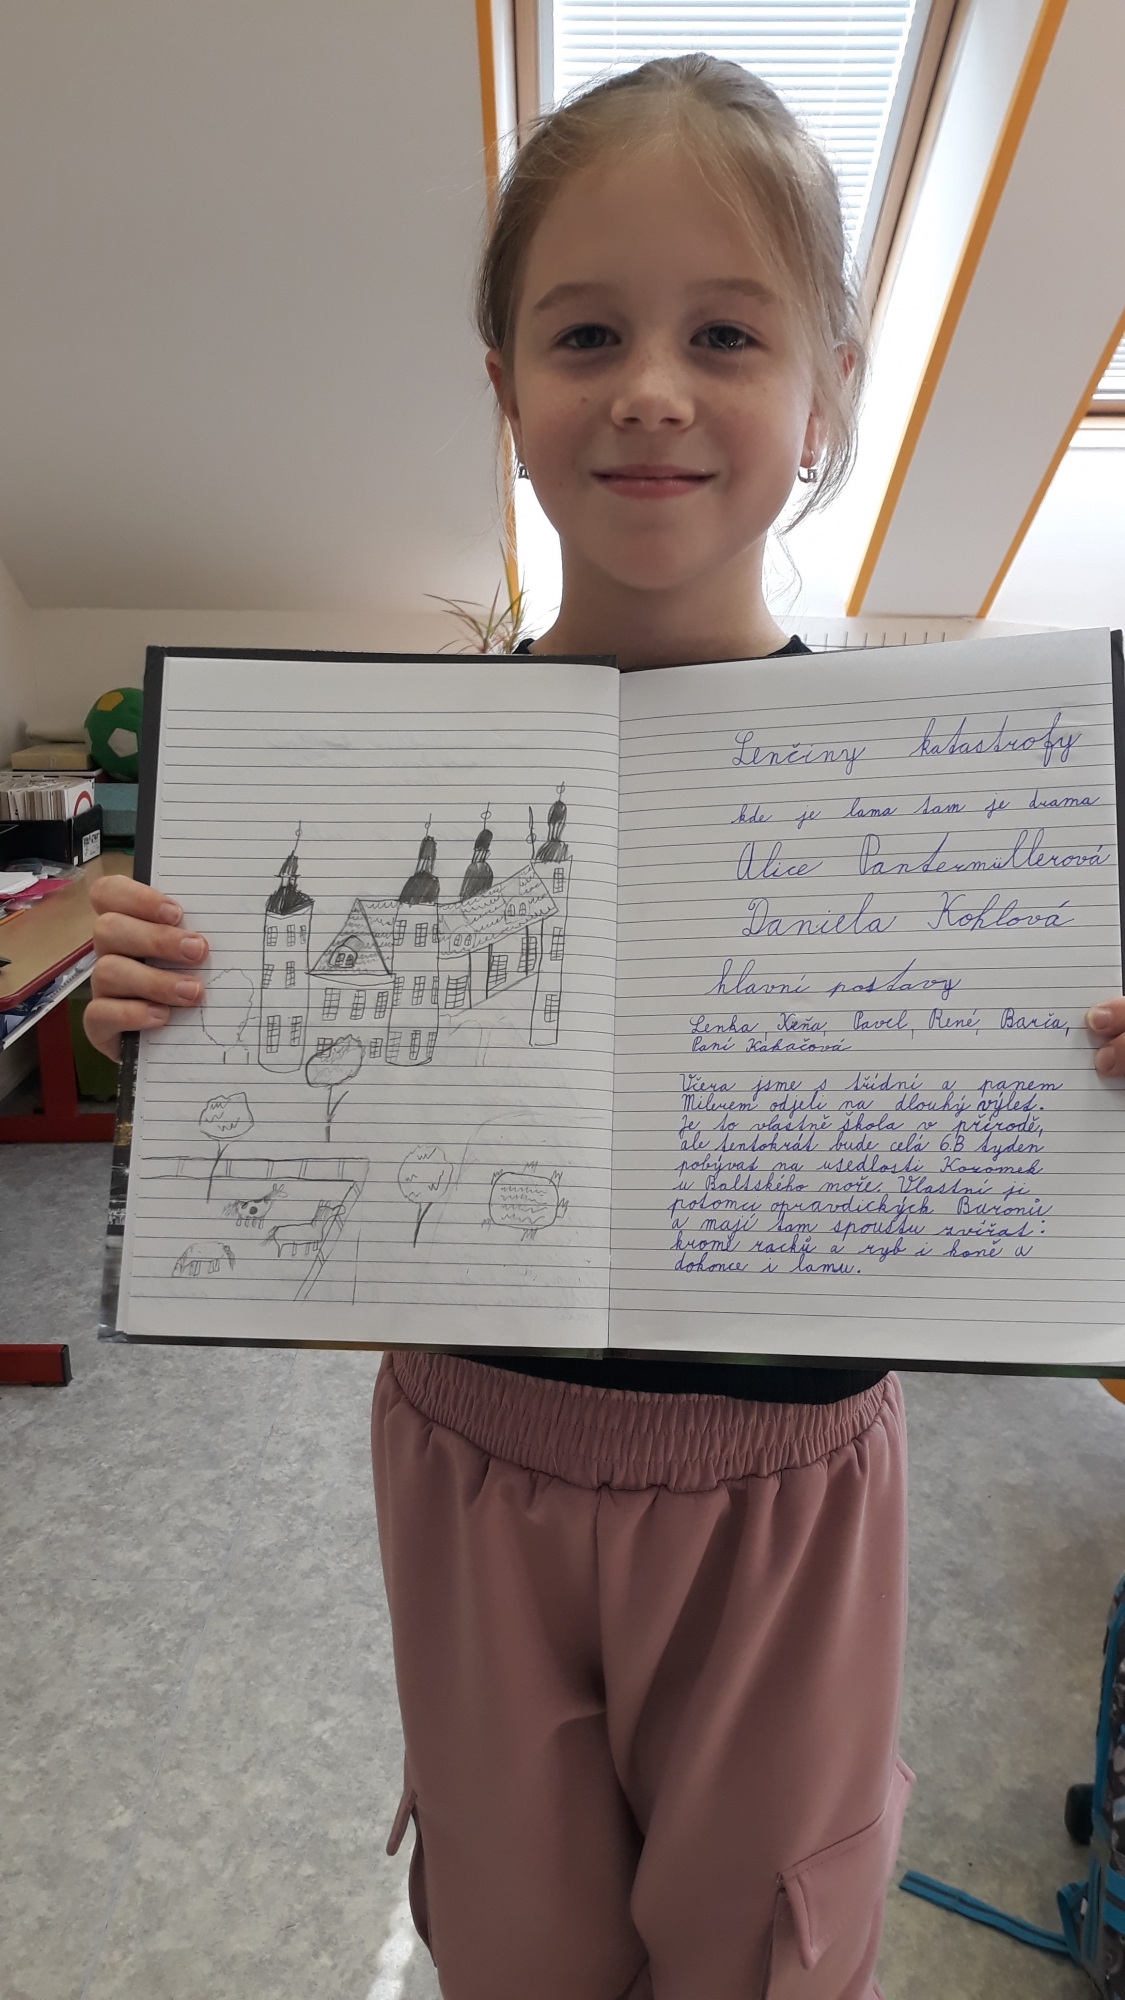 Lenčiny katastrofy
kde je lama tam je drama
Alice Pantermüllerová
Daniela Kohlová
hlavní postavy
Lenka, Xeňa, Pavel, René, Barča,
Paní Kakačová
Včera jsme s třídní a panem
Milerem odjeli na dlouhý výlet.
Je to vlastně škola v přírodě,
ale tentokrát bude celá 6.B tyden
pobývat na usedlosti Koromek
u Baltského moře. Vlastní ji
potomci opravdických Baronů
a mají tam spoustu zvířat:
kromě racků a ryb i koně a
dokonce i lamu.